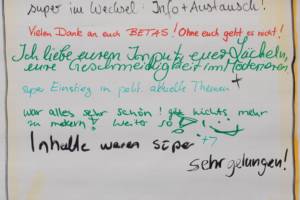 super im Wechsel - Info + Austausch!
Vielen Dank an euch BETAS! Ohne euch geht es nicht!
Ich liebe euren Input, euer Lächeln,
eure Geschmeidigkeit im Moderieren
super Einstieg in polit. aktuelle Themen +
war alles sehr schön! gibt nichts mehr
zu meckern! weiter so!
Inhalte waren super +7
sehr gelungen!